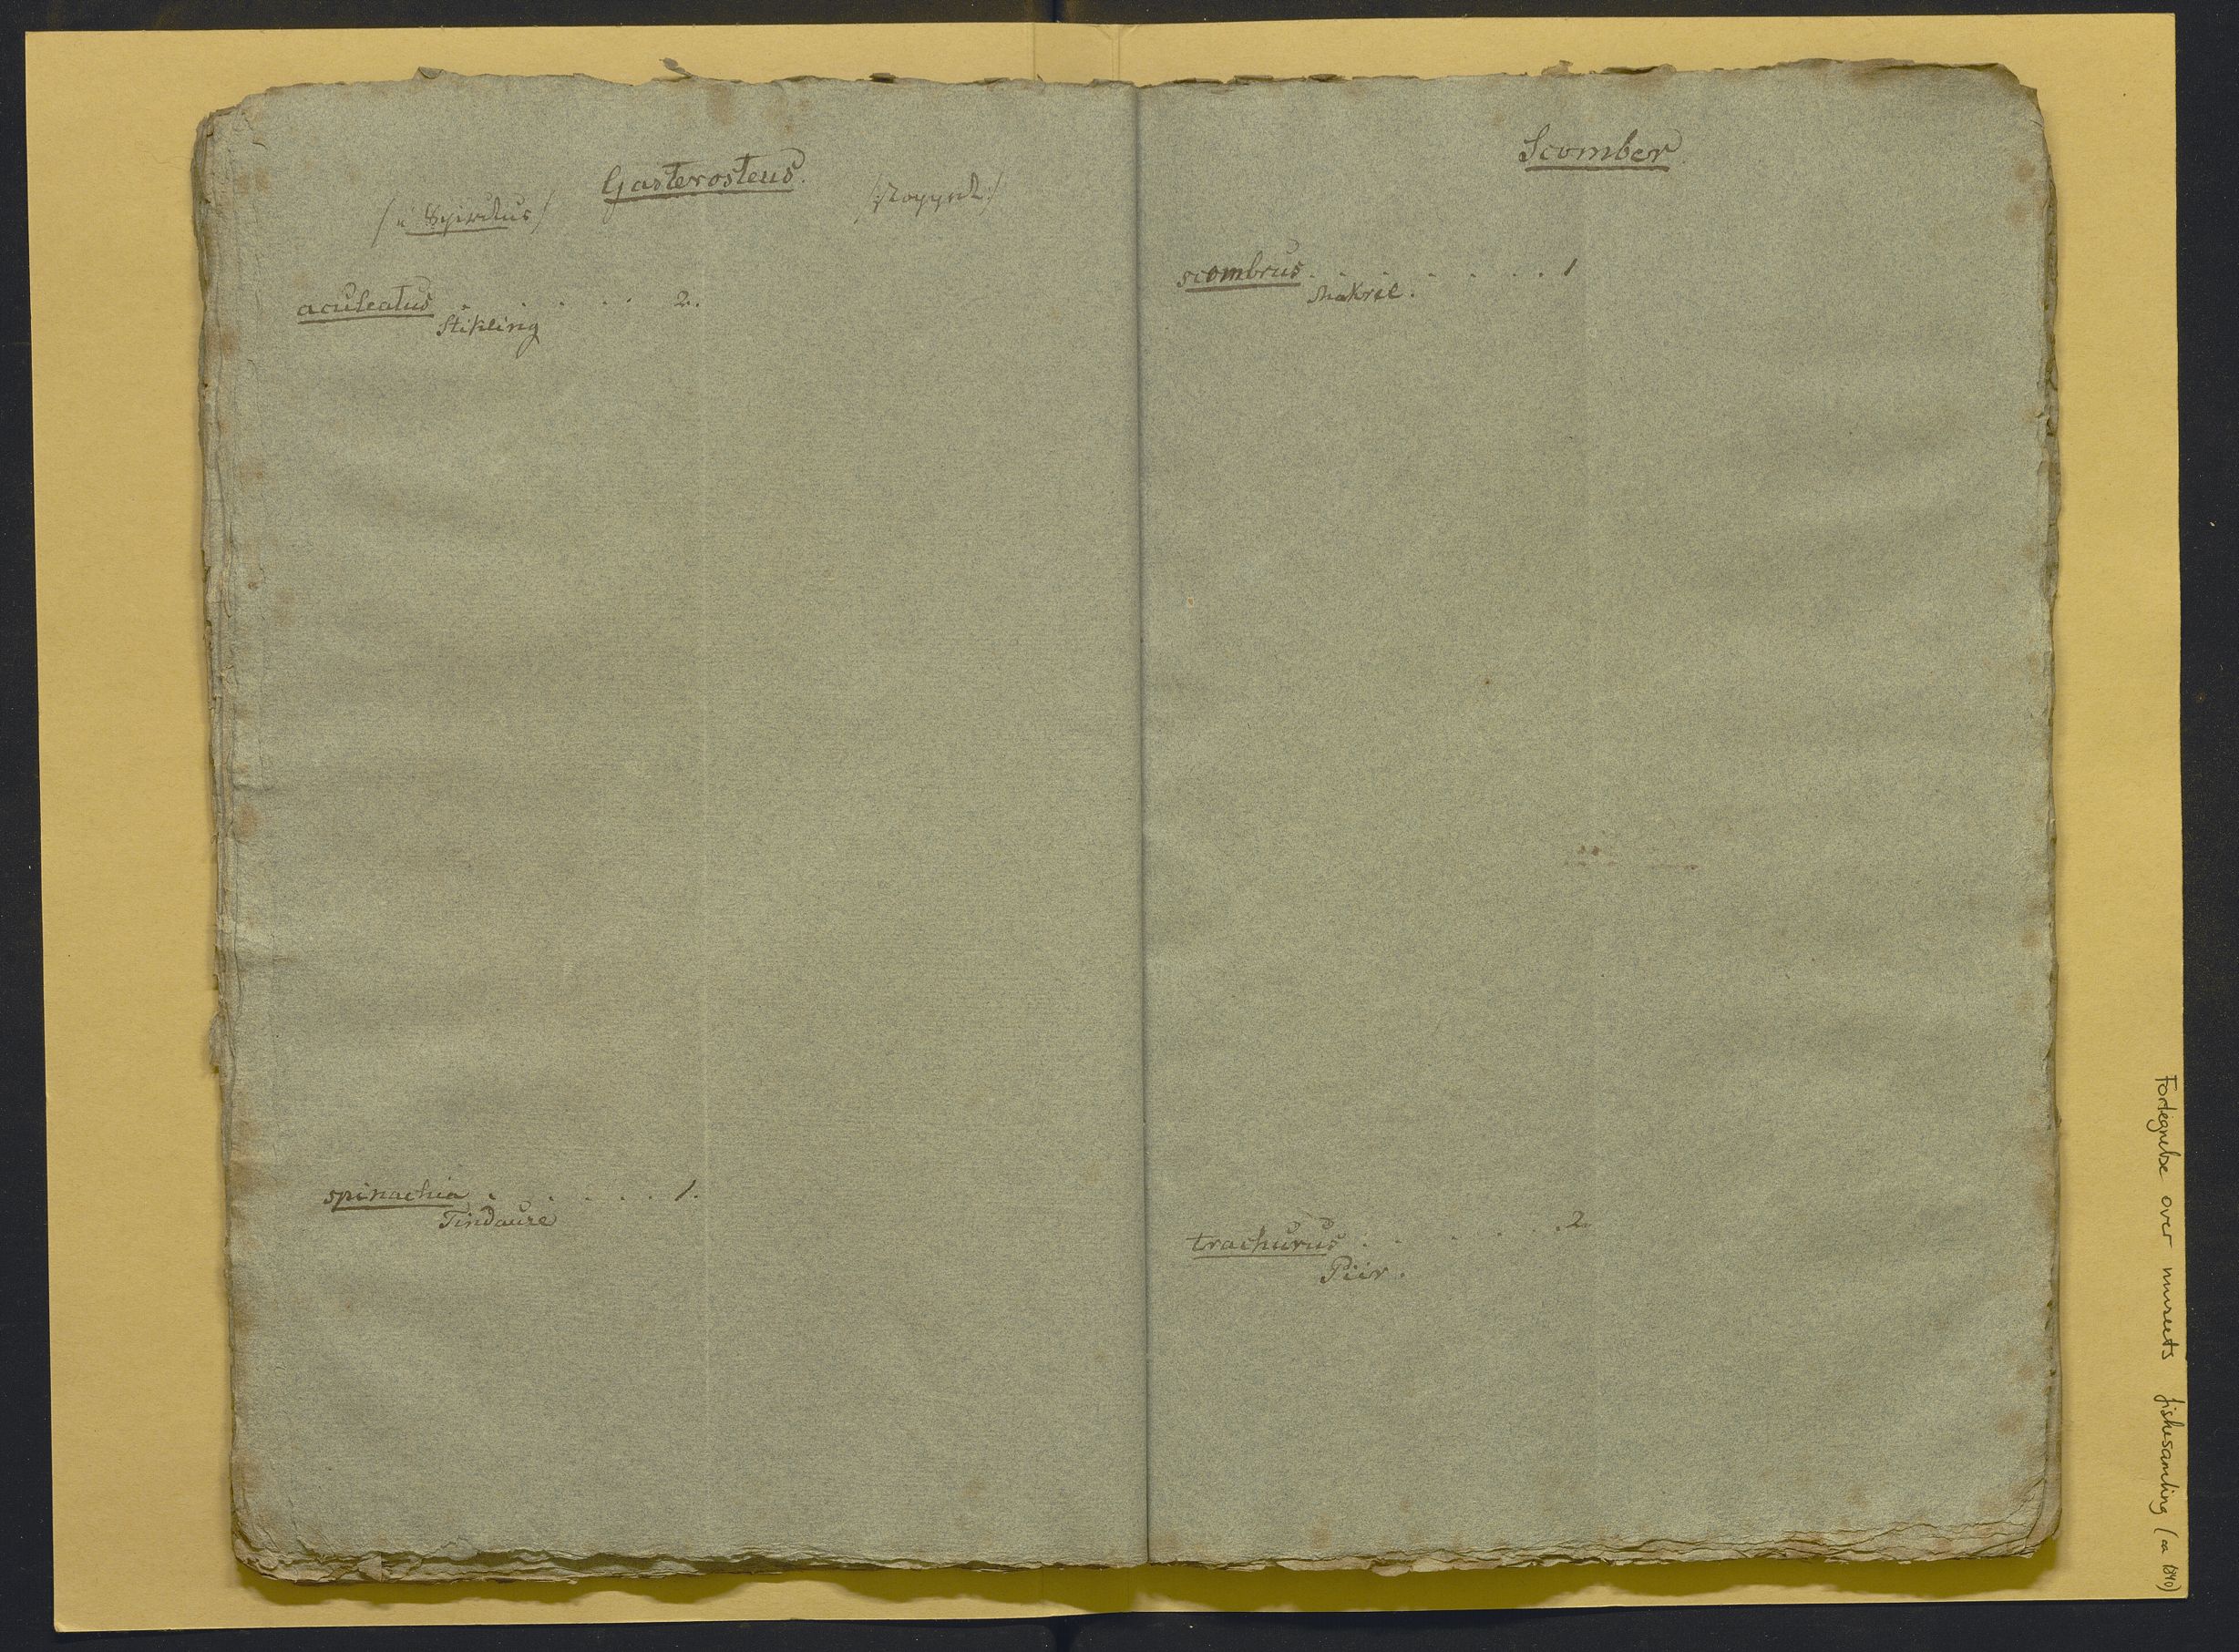 Gasterosteus.
/i Spiritus/
/stoppet/
aculeatus . . . . . . 2.
Stikling
spinachia . . . . . . 1.
Tindaure
Scomber.
scombrus . . . . . . . 1
Makrel.
trachurus . . . . . . 2
Piir.
Fortegnelse over museets fiskesamling (ca 1840)